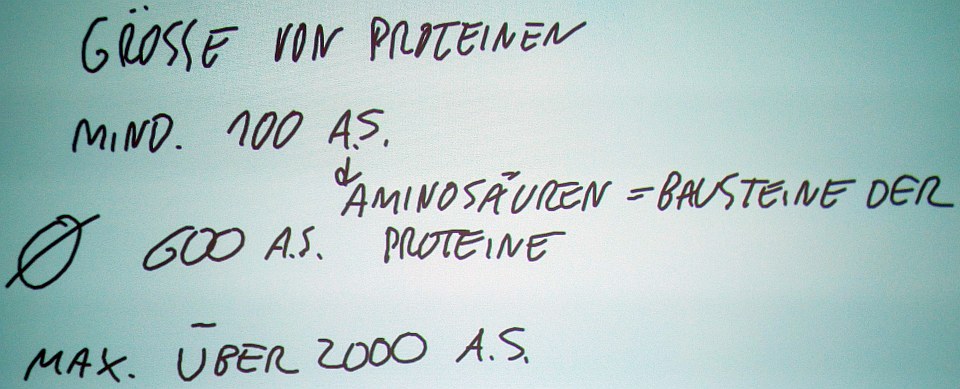 GRÖSSE VON PROTEINEN
MIND. 100 A.S.
AMINOSÄUREN = BAUSTEINE DER
Ø 600 A.S. PROTEINE
MAX. ÜBER 2000 A.S.